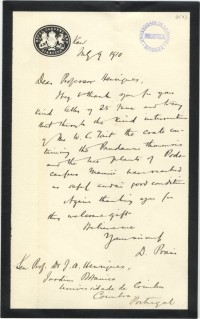 Kew
July 9 1910
Dear Professor Henriques,
Many thanks for your
kind letter of 25 June and
that through the kind intervention
of Mr W. C. Tait the cases
the Pandanus thomensis
and the two plants of Podo-
carpus Mannii have reached
us safely and in good condition
Again thanking you for
this welcome gift
Believe me
Yours sincerely
D. Prain
Prof. Dr J. A. Henriques,
Jardim Botanico
Universidade de Coimbra
Coimbra
Portugal